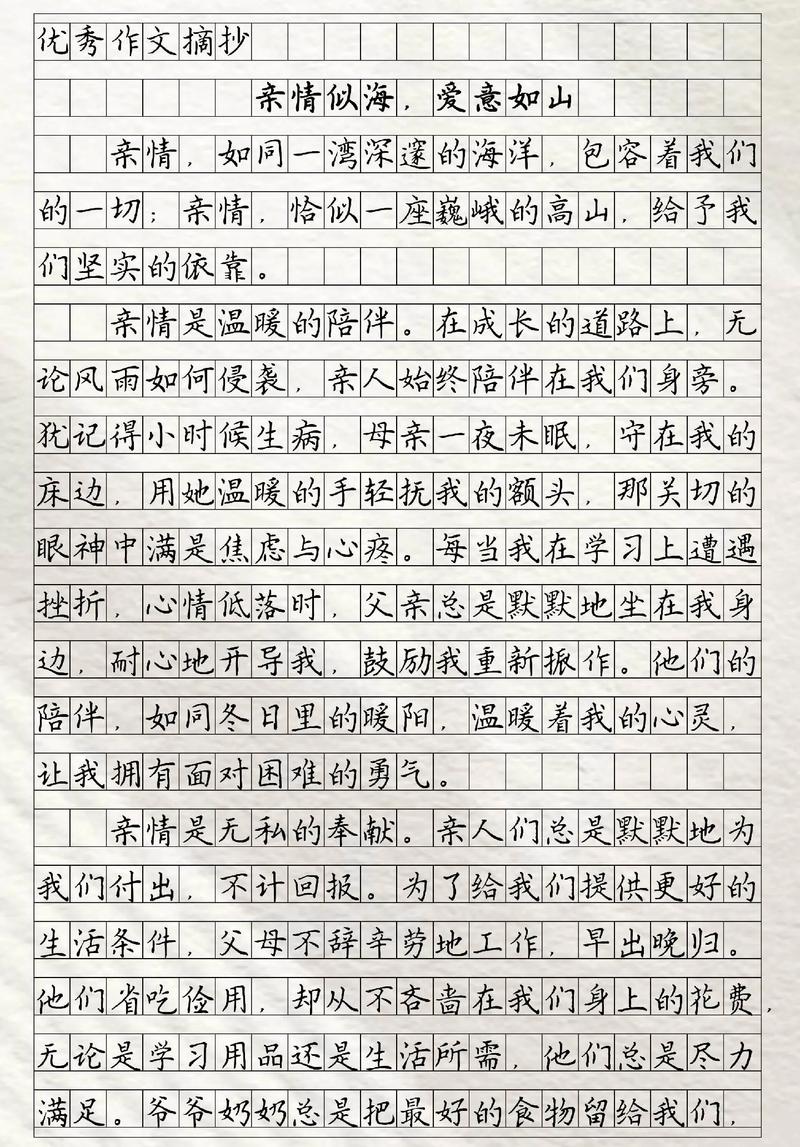 优秀作文摘抄
亲情似海，爱意如山
亲情，如同一湾深邃的海洋，包容着我们
的一切；亲情，恰似一座巍峨的高山，给予我
们坚实的依靠。
亲情是温暖的陪伴。在成长的道路上，无
论风雨如何侵袭，亲人始终陪伴在我们身旁。
犹记得小时候生病，母亲一夜未眠，守在我的
床边，用她温暖的手轻抚我的额头，那关切的
眼神中满是焦虑与心疼。每当我在学习上遭遇
挫折，心情低落时，父亲总是默默地坐在我身
边，耐心地开导我，鼓励我重新振作。他们的
陪伴，如同冬日里的暖阳，温暖着我的心灵，
让我拥有面对困难的勇气。
亲情是无私的奉献。亲人们总是默默地为
我们付出，不计回报。为了给我们提供更好的
生活条件，父母不辞辛劳地工作，早出晚归。
他们省吃俭用，却从不吝啬在我们身上的花费，
无论是学习用品还是生活所需，他们总是尽力
满足。爷爷奶奶总是把最好的食物留给我们，